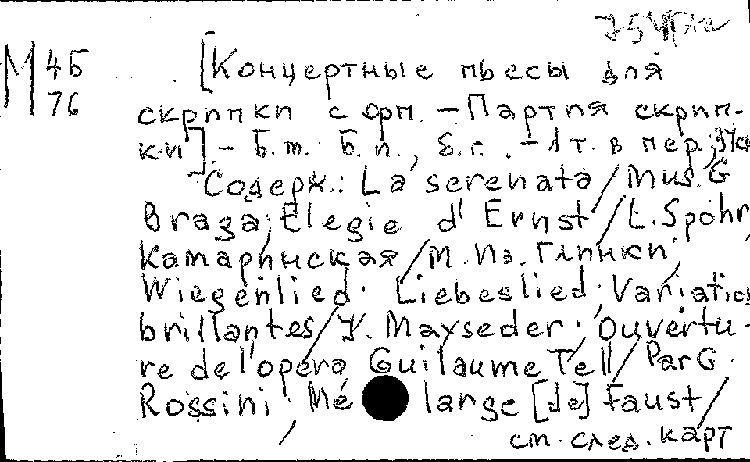 М 45
76
[Концертные пьесы для
скрипки с орп. — Партия скрип-
ки]. — Б.т. Б.п., б.г. — 1 т. в пер.
Содерж.: La serenata / Mus. G
Braga; Elegie d'Ernst / L. Spohr
Камаринская / М. Ив. Глинки;
Wiegenlied. Liebeslied; Variations
brillantes / J. Mayseder; Ouvertu-
re de l'opéra Guilaume Tell / Par G.
Rossini; Mélange [de] Faust /
см. след. карт